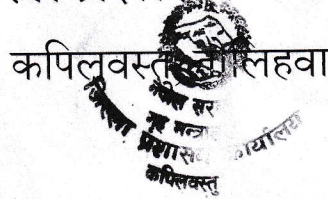 कपिलवस्तु तौलिहवा
नेपाल सरकार
गृह मन्त्रालय
जिल्ला प्रशासन कार्यालय
कपिलवस्तु